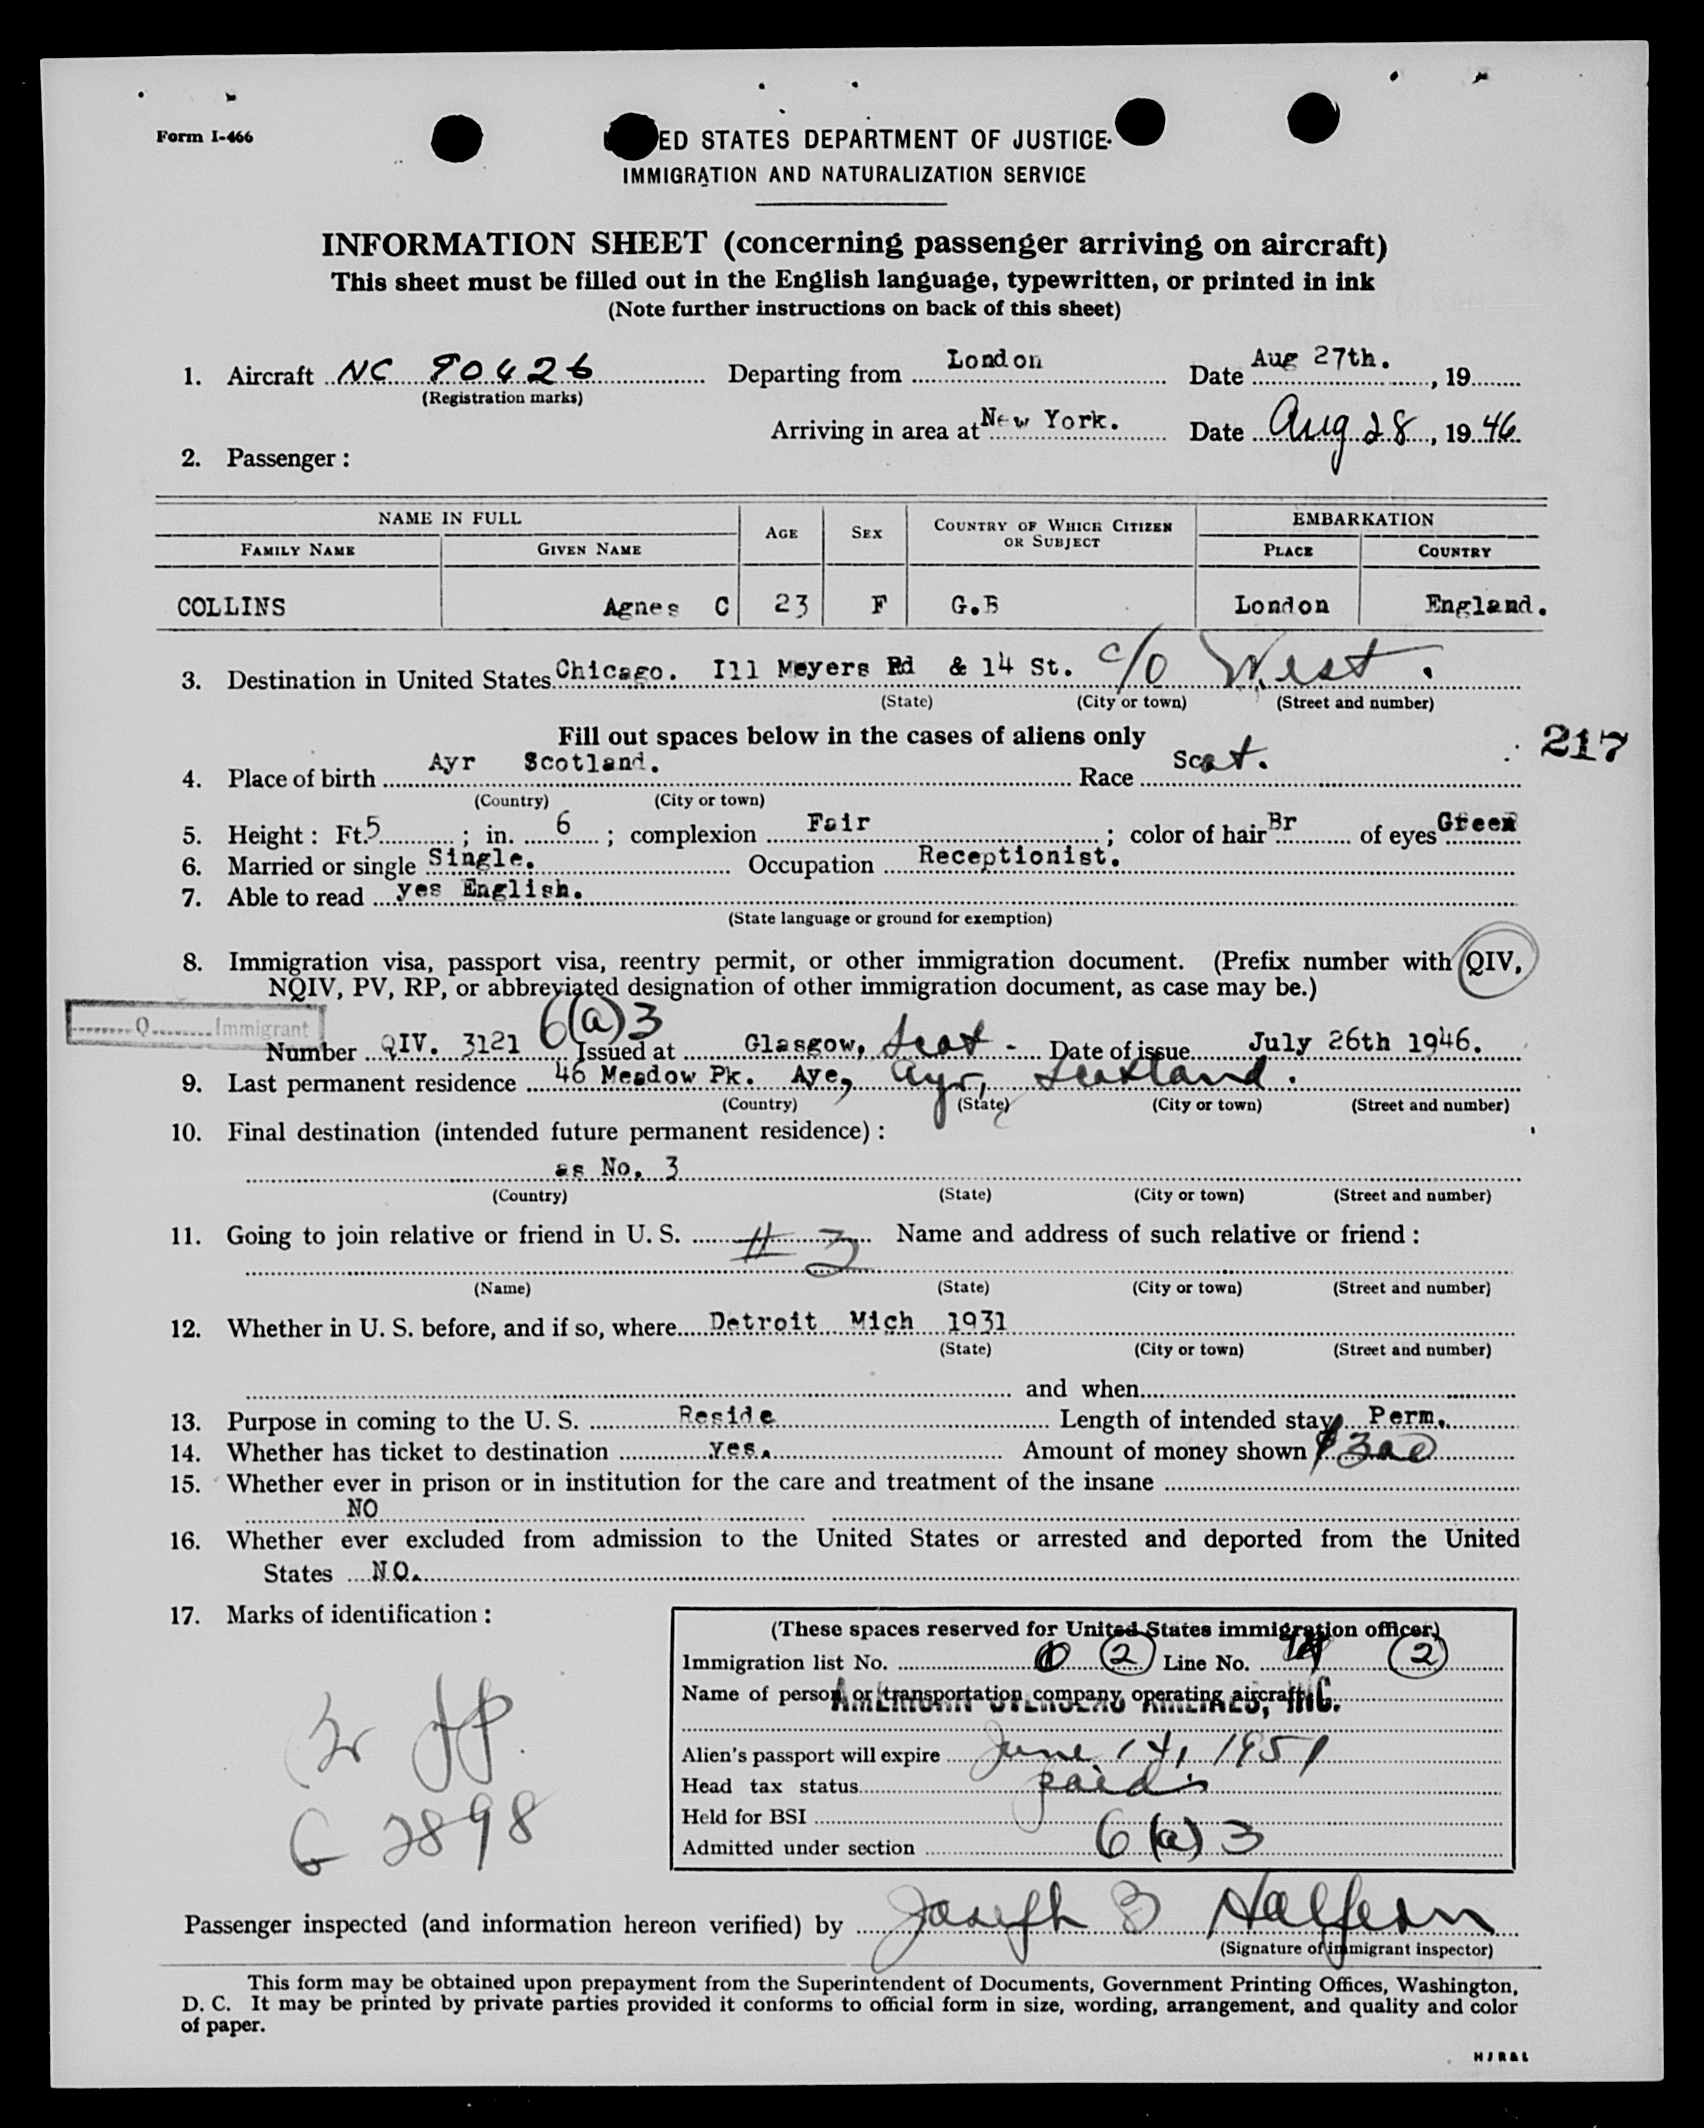 Form I-466
ED STATES DEPARTMENT OF JUSTICE
IMMIGRATION AND NATURALIZATION SERVICE
INFORMATION SHEET (concerning passenger arriving on aircraft)
This sheet must be filled out in the English language, typewritten, or printed in ink
(Note further instructions on back of this sheet)
1. Aircraft NC 90426 Departing from London Date Aug 27th. , 19
(Registration marks)
Arriving in area at New York. Date Aug 28, 1946
2. Passenger:
NAME IN FULL AGE SEX COUNTRY OF WHICH CITIZEN OR SUBJECT EMBARKATION
FAMILY NAME GIVEN NAME PLACE COUNTRY
COLLINS Agnes C 23 F G.B London England.
3. Destination in United States Chicago. Ill Meyers Rd & 14 St. c/o West.
(State) (City or town) (Street and number)
Fill out spaces below in the cases of aliens only
217
4. Place of birth Ayr Scotland. Race Scot.
(Country) (City or town)
5. Height: Ft. 5 ; in. 6 ; complexion Fair ; color of hair Br of eyes Green
6. Married or single Single. Occupation Receptionist.
7. Able to read yes English.
(State language or ground for exemption)
8. Immigration visa, passport visa, reentry permit, or other immigration document. (Prefix number with QIV,
NQIV, PV, RP, or abbreviated designation of other immigration document, as case may be.)
Q Immigrant 6(a)3
Number QIV. 3121 Issued at Glasgow, Scot - Date of issue July 26th 1946.
9. Last permanent residence 46 Meadow Pk. Aye, Ayr, Scotland.
(Country) (State) (City or town) (Street and number)
10. Final destination (intended future permanent residence):
as No. 3
(Country) (State) (City or town) (Street and number)
11. Going to join relative or friend in U. S. # 3 Name and address of such relative or friend:
(Name) (State) (City or town) (Street and number)
12. Whether in U. S. before, and if so, where Detroit Mich 1931
(State) (City or town) (Street and number)
and when
13. Purpose in coming to the U. S. Reside Length of intended stay Perm.
14. Whether has ticket to destination yes. Amount of money shown $300
15. Whether ever in prison or in institution for the care and treatment of the insane
NO
16. Whether ever excluded from admission to the United States or arrested and deported from the United
States NO.
17. Marks of identification:
(These spaces reserved for United States immigration officer)
Immigration list No. 2 Line No. 2
Name of person or transportation company operating aircraft
AMERICAN OVERSEAS AIRLINES, INC.
Alien's passport will expire June 14, 1951
Head tax status paid
Held for BSI
Admitted under section 6(a)3
G 2898
Passenger inspected (and information hereon verified) by Joseph B Halfern
(Signature of immigrant inspector)
This form may be obtained upon prepayment from the Superintendent of Documents, Government Printing Offices, Washington,
D. C. It may be printed by private parties provided it conforms to official form in size, wording, arrangement, and quality and color
of paper.